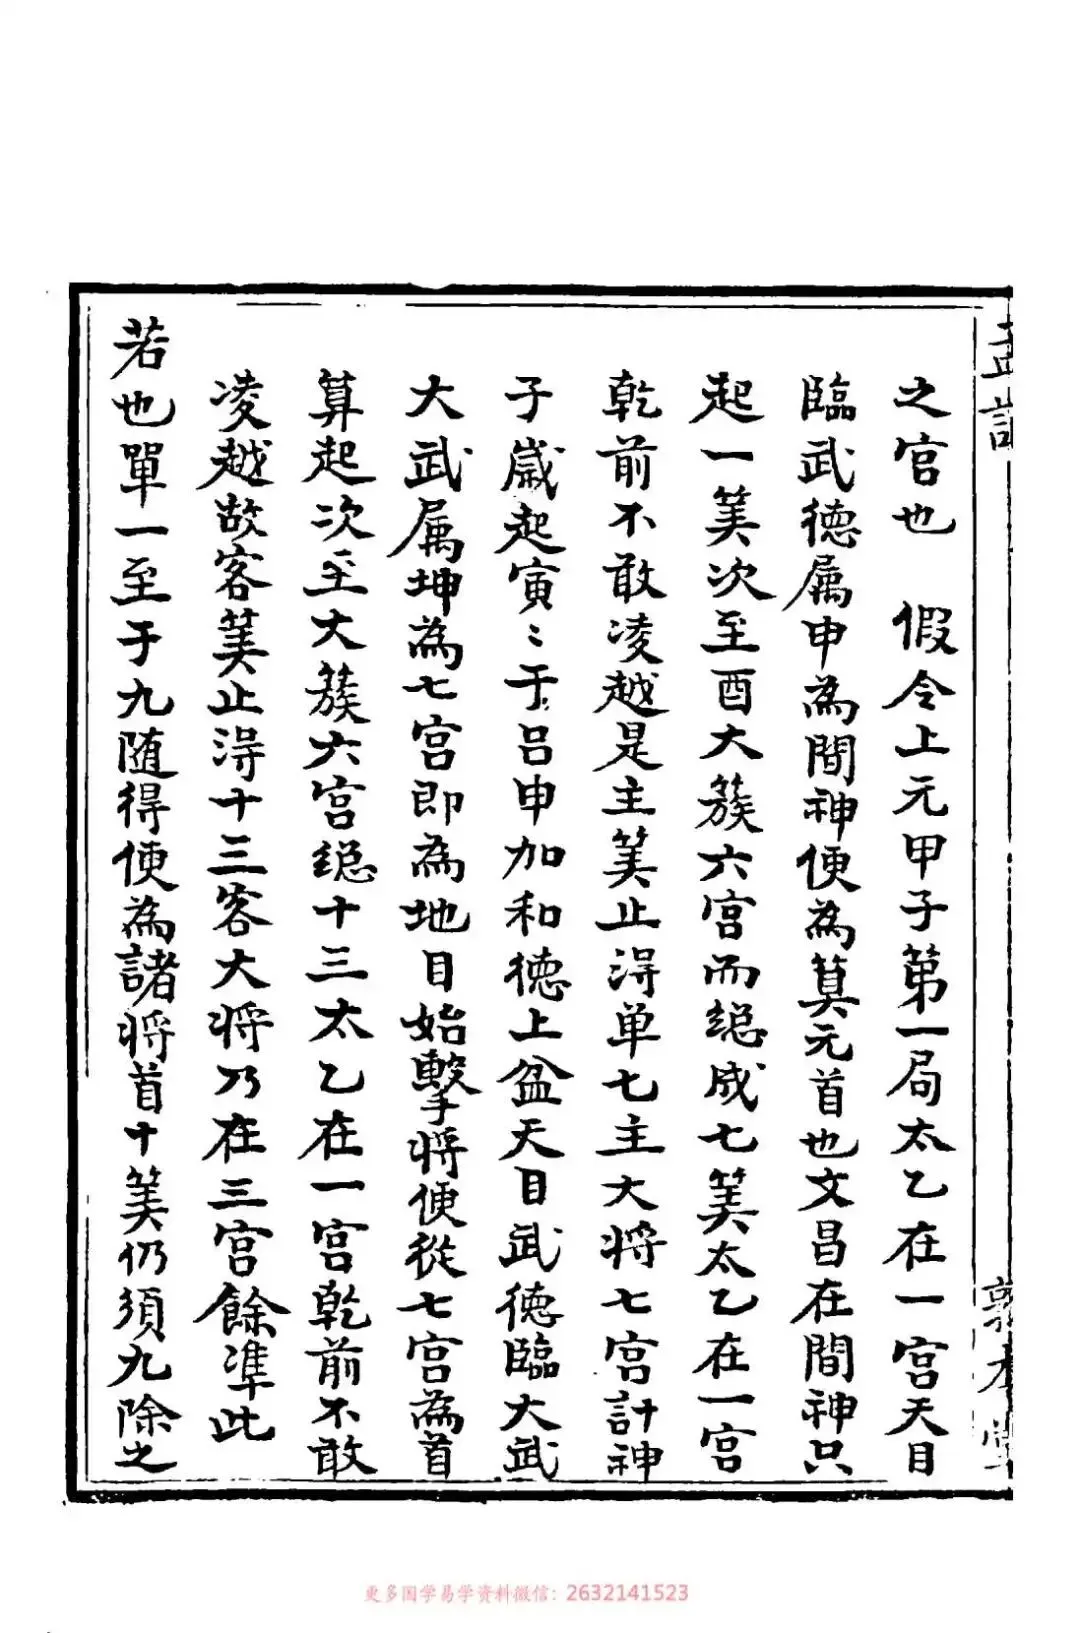 之宫也　假令上元甲子第一局太乙在一宫天目
臨武德属申為間神便為莫元首也文昌在間神只
起一筭次至酉大簇六宫而縂成七筭太乙在一宫
乾前不敢凌越是主筭止淂单七主大将七宫計神
子歳起寅〻于吕申加和德上盆天目武德臨大武
大武属坤為七宫即為地目始擊将便従七宫為首
算起次至大簇六宫縂十三太乙在一宫乾前不敢
凌越故客筭止淂十三客大将乃在三宫餘凖此
若也單一至于九随得便為諸将首十筭仍須九除之
更多国学易学资料微信：2632141523